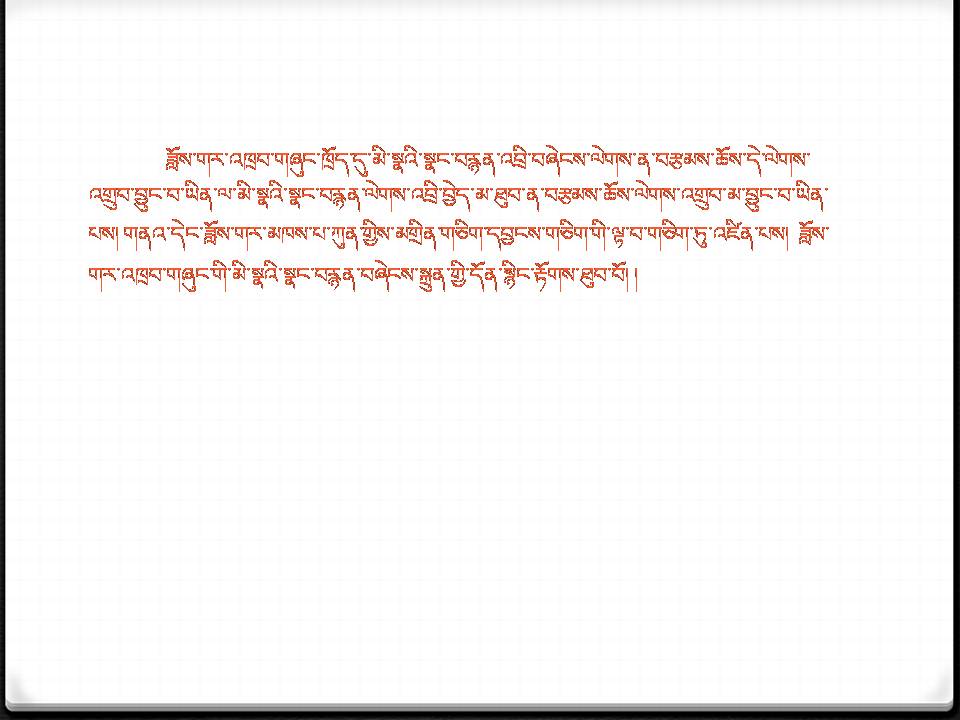 ཟློས་གར་འཁྲབ་གཞུང་ཁྲོད་དུ་མི་སྣའི་སྣང་བརྙན་འབྲི་བཞེངས་ལེགས་ན་བརྩམས་ཆོས་དེ་ལེགས་
འགྲུབ་བྱུང་བ་ཡིན་ལ་མི་སྣའི་སྣང་བརྙན་ལེགས་འབྲི་བྱེད་མ་ཐུབ་ན་བརྩམས་ཆོས་ལེགས་འགྲུབ་མ་བྱུང་བ་ཡིན་
པས། གནའ་དེང་ཟློས་གར་མཁས་པ་ཀུན་གྱིས་མགྲིན་གཅིག་དབྱངས་གཅིག་གི་ལྟ་བ་གཅིག་ཏུ་འཛིན་པས། ཟློས་
གར་འཁྲབ་གཞུང་གི་མི་སྣའི་སྣང་བརྙན་བཞེངས་སྐྲུན་གྱི་དོན་སྙིང་རྟོགས་ཐུབ་བོ། །